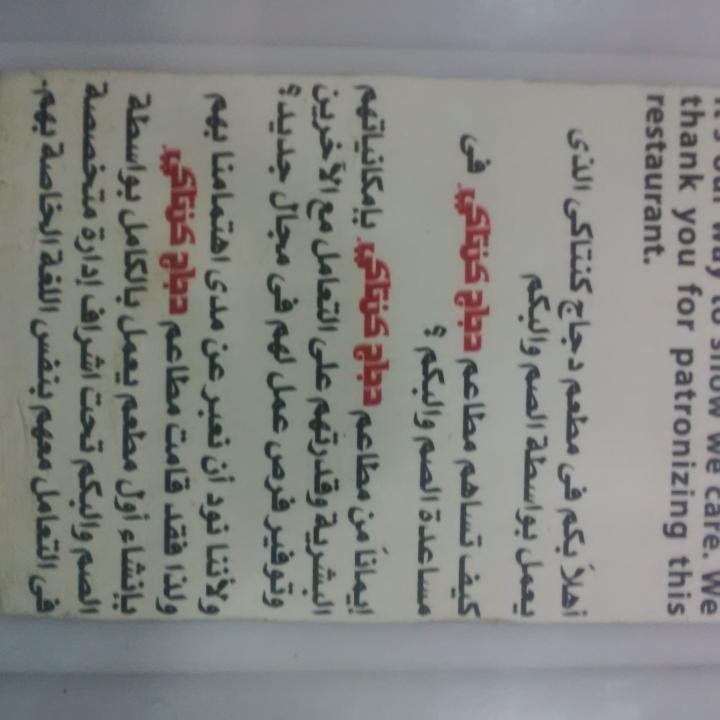 It's our way to show we care. We
thank you for patronizing this
restaurant.
أهلاً بكم فى مطعم دجاج كنتاكى الذى
يعمل بواسطة الصم والبكم
كيف تساهم مطاعم دجاج كنتاكي فى
مساعدة الصم والبكم ؟
ايماناً من مطاعم دجاج كنتاكي بإمكانياتهم
البشرية وقدرتهم على التعامل مع الآخرين
وتوفير فرص عمل لهم فى مجال جديد ؟
ولأننا نود أن نعبر عن مدى اهتمامنا بهم
ولذا فقد قامت مطاعم دجاج كنتاكي
بإنشاء أول مطعم يعمل بالكامل بواسطة
الصم والبكم تحت اشراف إدارة متخصصة
فى التعامل معهم بنفس اللغة الخاصة بهم.